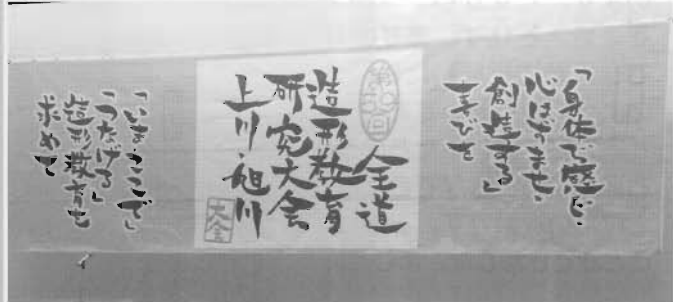 「身体で感じ・
心はずませ・
創造する」
喜びを
全道
造形教育
研究大会
上川・旭川
大会
「いま・ここで」
「つなげる」
造形教育を
求めて